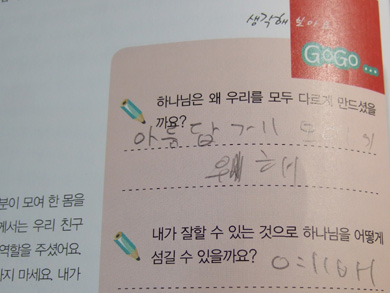 생각해 보아요
GoGo...
하나님은 왜 우리를 모두 다르게 만드셨을
까요?
아름답게
해
내가 잘할 수 있는 것으로 하나님을 어떻게
섬길 수 있을까요?
예배
분이 모여 한 몸을
께서는 우리 친구
역할을 주셨어요.
하지 마세요. 내가